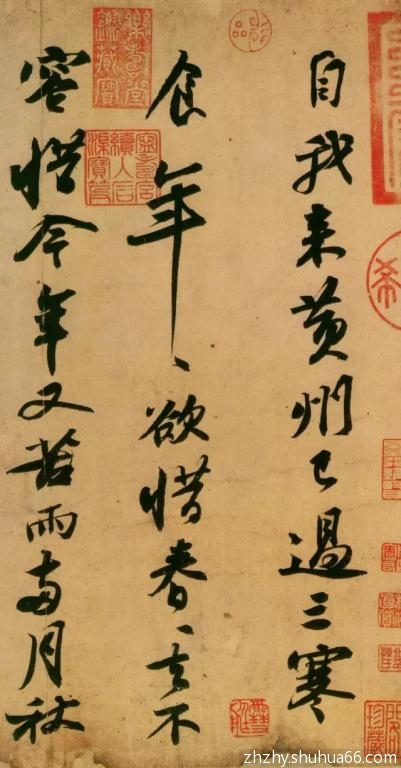 自我來黃州已過三寒
食年〻欲惜春〻去不
容惜今年又苦雨兩月秋
zhzhy.shuhua66.com